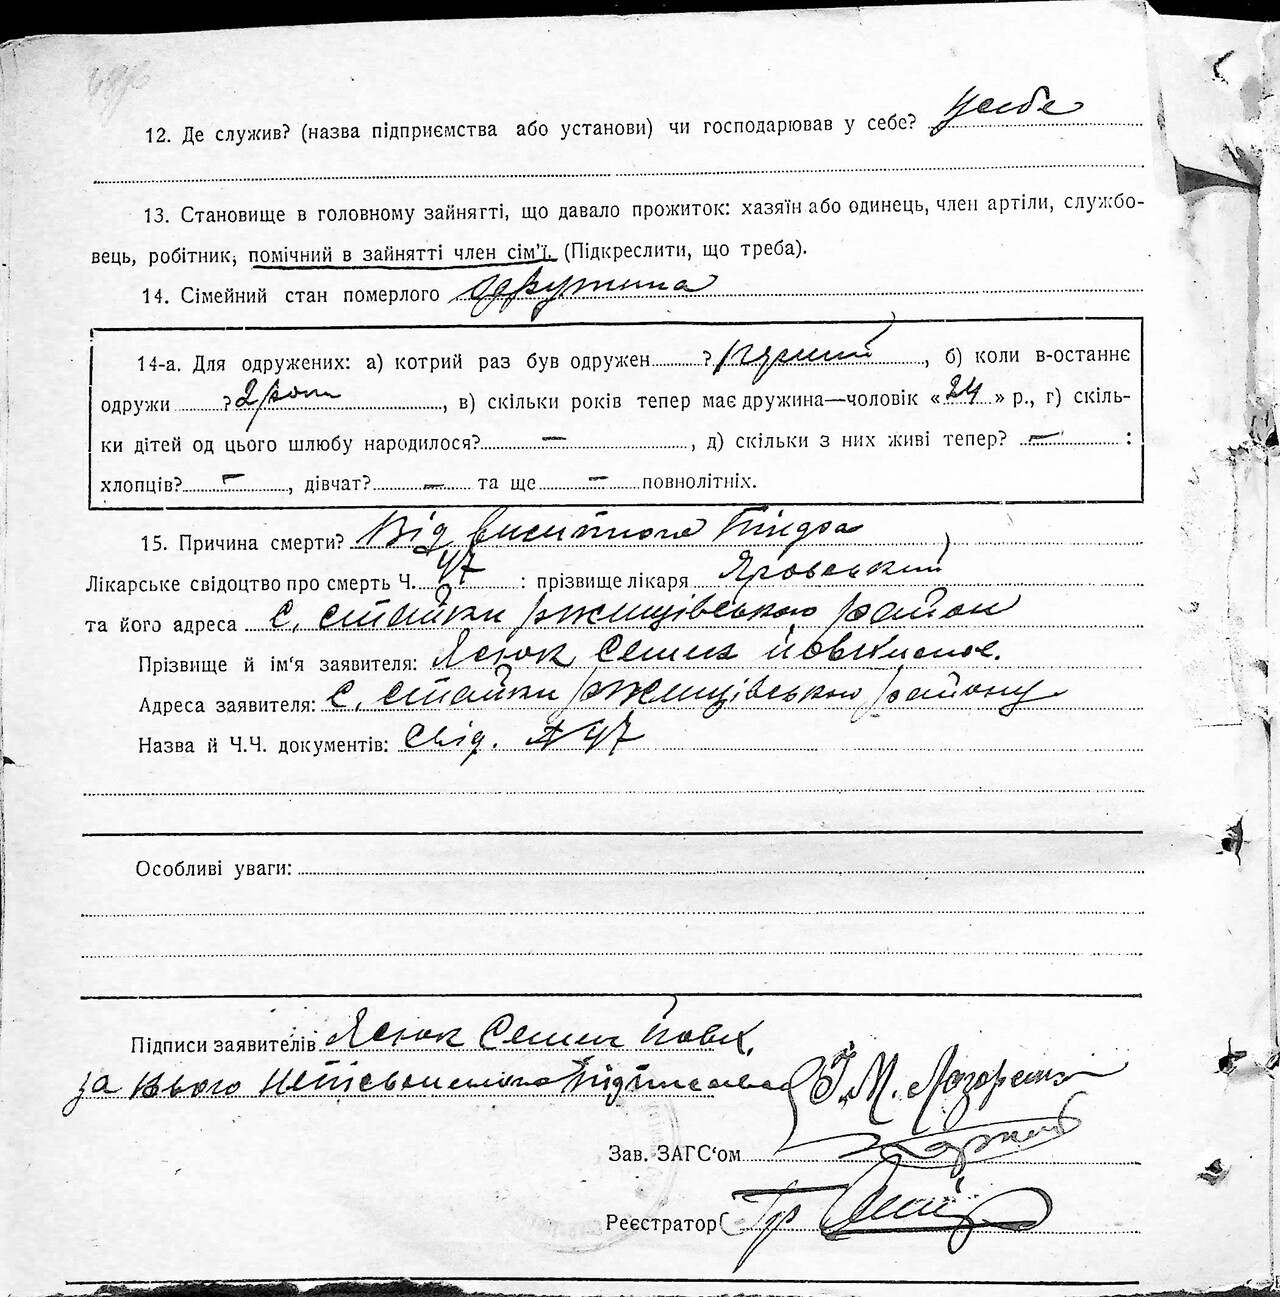 12. Де служив? (назва підприємства або установи) чи господарював у себе? у себе
13. Становище в головному зайнятті, що давало прожиток: хазяїн або одинець, член артіли, службо-
вець, робітник, помічний в зайнятті член сім'ї. (Підкреслити, що треба).
14. Сімейний стан померлого одружина
14-а. Для одружених: а) котрий раз був одружен ? , б) коли в-останнє
одружи ? 2 , в) скільки років тепер має дружина—чоловік «24» р., г) скіль-
ки дітей од цього шлюбу народилося? — , д) скільки з них живі тепер? — :
хлопців? — , дівчат? — та ще — повнолітніх.
15. Причина смерти? Від
Лікарське свідоцтво про смерть Ч. 47 : прізвище лікаря Яровський
та його адреса с. Стайки Ржищівського район
Прізвище й ім'я заявителя: Ясюк Семен
Адреса заявителя: с. Стайки Ржищівського району
Назва й Ч.Ч. документів: Свід. № 47
Особливі уваги:
Підписи заявителів Ясюк Семен Йовх.
за нього неписьменного підписався
Зав. ЗАГС'ом
Реєстратор